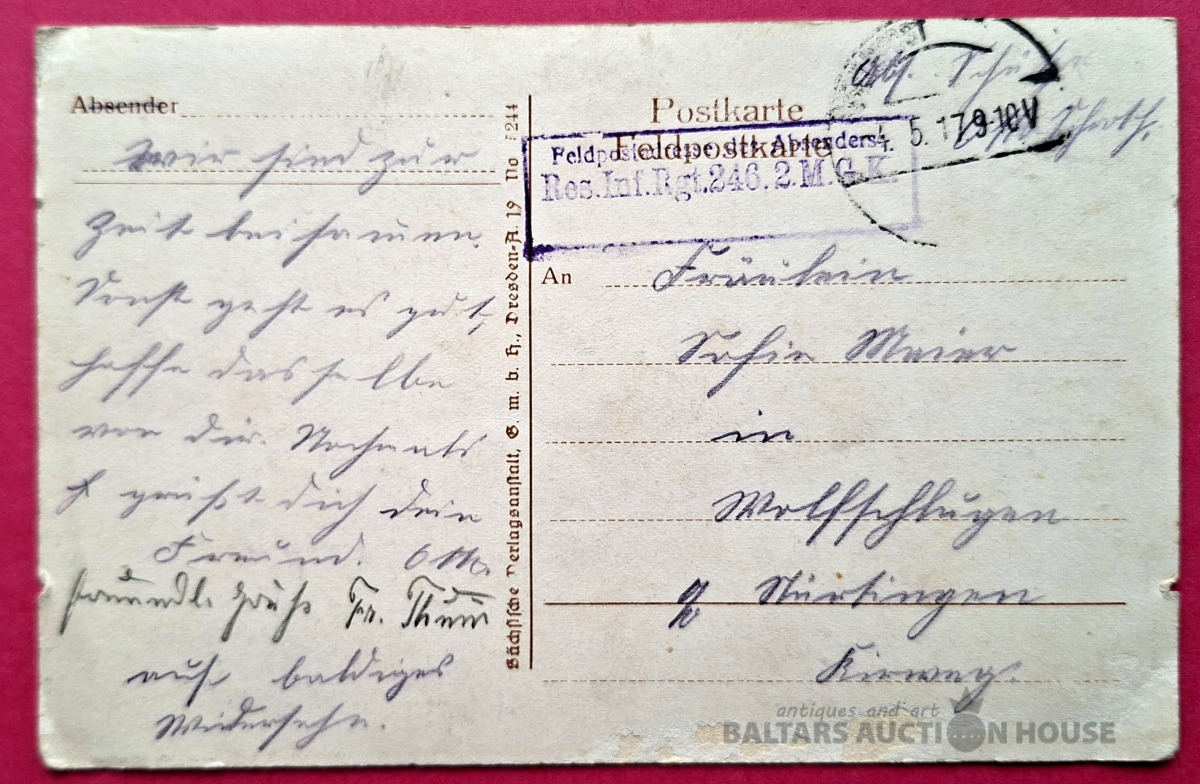 Absender
Wir sind zur
Zeit beisamen.
Sonst geht es gut,
hoffe dasselbe
von dir. Nochmals
grüßt dich dein
Freund.
freundl. Gruß Fr. Thum
auf baldiges
Widersehn.
Sächsische Verlagsanstalt, G. m. b. H., Dresden-A. 19 No 5244
Postkarte
Feldpostkarte
Feldpostadresse des Absenders:
Res.Inf.Rgt.246.2.M.G.K.
5.17 9-10V
Abs.
An Fräulein
Sofie Maier
in
Wolfschlugen
Nürtingen
Kirweg.
antiques and art
BALTARS AUCTION HOUSE